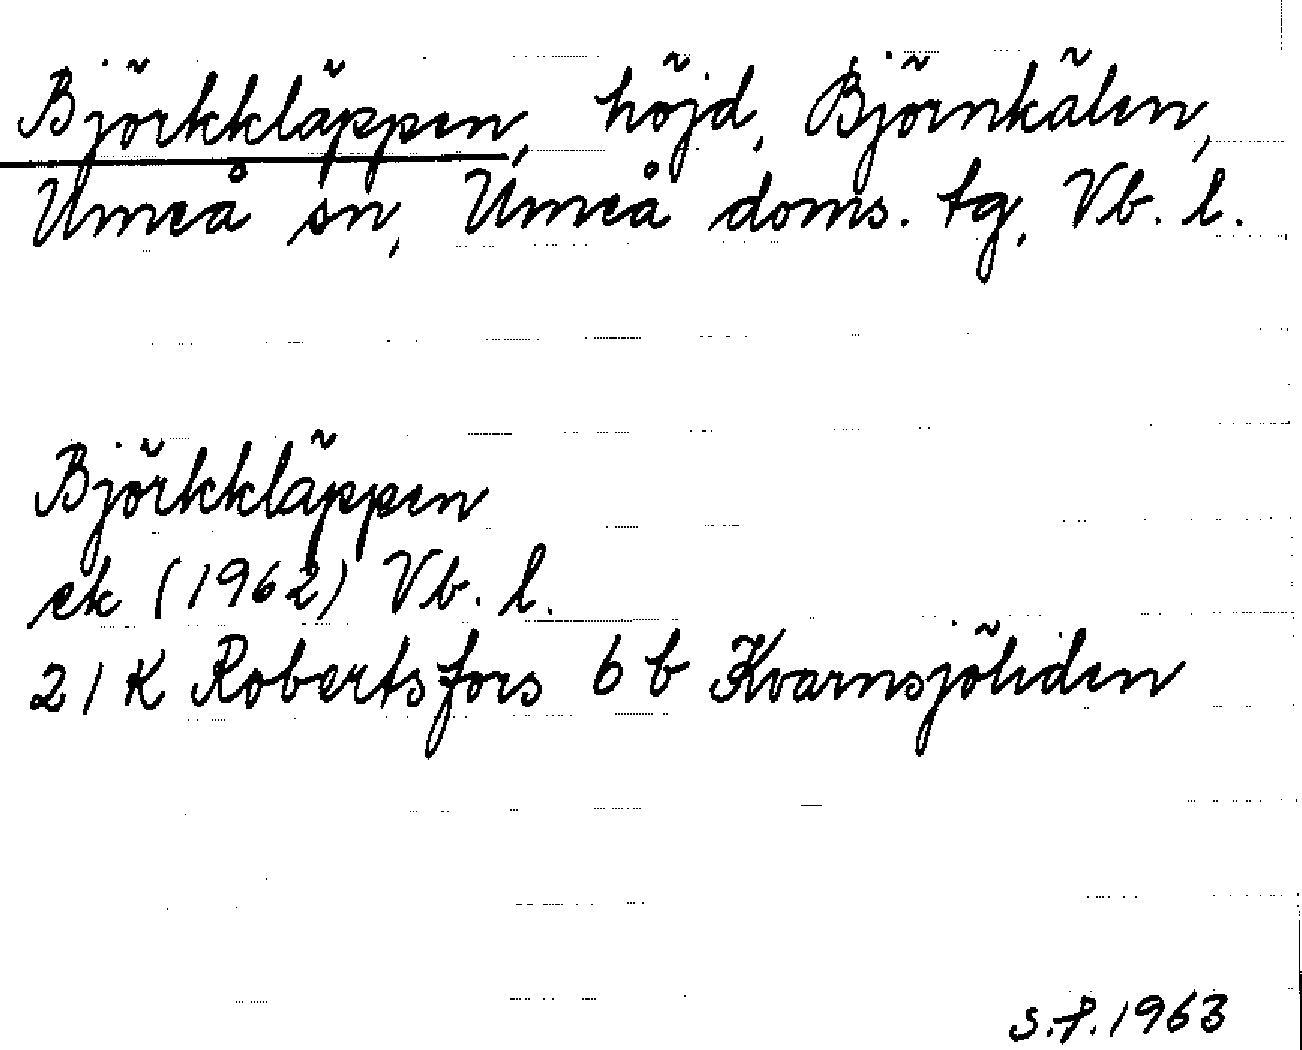 Björkkläppen, höjd, Björnkälen,
Umeå sn, Umeå doms. tg, Vb. l.
Björkkläppen
ek (1962) Vb. l.
21 K Robertsfors 6 b Kvarnsjöliden
S.P. 1963